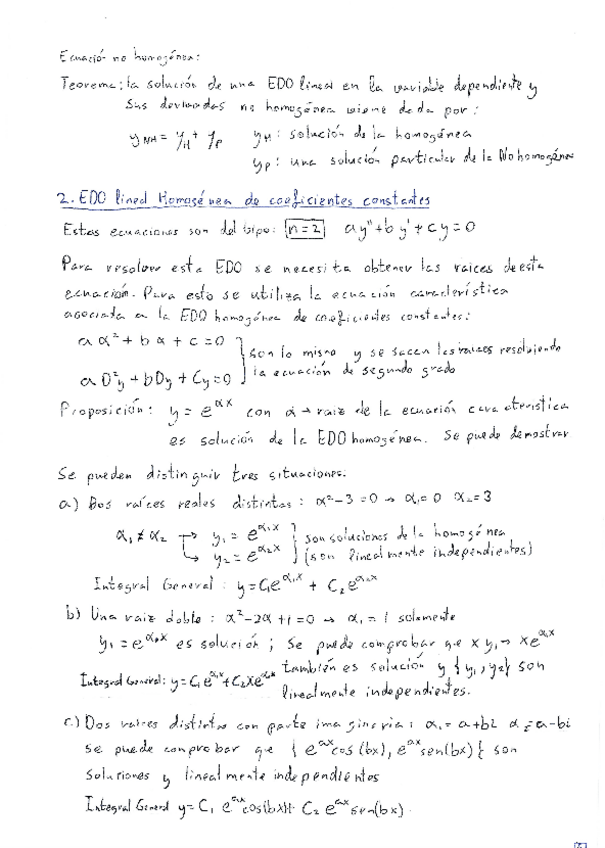 Ecuació no homogénea:
Teorema: la solución de una EDO lineal en la variable dependiente y
sus derivadas no homogénea viene dada por:
y_NH = y_H + y_P   y_H: solución de la homogénea
y_P: una solución particular de la No homogénea
2. EDO lineal Homogénea de coeficientes constantes
Estas ecuaciones son del tipo: n=2   ay''+by'+cy=0
Para resolver esta EDO se necesita obtener las raices de esta
ecuación. Para esto se utiliza la ecuación característica
asociada a la EDO homogénea de coeficientes constantes:
aα²+bα+c=0 } son lo mismo y se sacan las raices resolviendo
aD²y+bDy+Cy=0 } la ecuación de segundo grado
Proposición: y=e^{αx} con α→raiz de la ecuación característica
es solución de la EDO homogénea. Se puede demostrar
Se pueden distinguir tres situaciones:
a) Dos raíces reales distintas: α²-3=0 → α₁=0 α₂=3
α₁≠α₂ → y₁=e^{α₁x} } son soluciones de la homogénea
↳ y₂=e^{α₂x} } (son linealmente independientes)
Integral General: y=C₁e^{α₁x} + C₂e^{α₂x}
b) Una raiz doble: α²-2α+1=0 → α₁=1 solamente
y₁=e^{α₁x} es solución; Se puede comprobar que x y₁→ xe^{α₁x}
también es solución y {y₁,y₂} son
Integral General: y=C₁e^{α₁x}+C₂xe^{α₁x} linealmente independientes.
c) Dos raices distintas con parte imaginaria: α₁=a+bi α₂=a-bi
se puede comprobar que {e^{ax}cos(bx), e^{ax}sen(bx)} son
Soluciones y linealmente independientes
Integral General y=C₁ e^{ax}cos(bx)+ C₂ e^{ax}sen(bx).